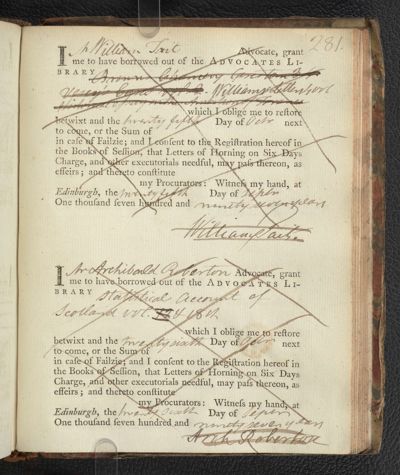 281.
I Mr William Tait Advocate, grant
me to have borrowed out of the ADVOCATES LI-
BRARY
Williams
which I oblige me to reſtore
betwixt and the twenty fifth Day of Octr next
to come, or the Sum of
in caſe of Failzie; and I conſent to the Regiſtration hereof in
the Books of Seſſion, that Letters of Horning on Six Days
Charge, and other executorials needful, may paſs thereon, as
effeirs; and thereto conſtitute
my Procurators: Witneſs my hand, at
Edinburgh, the twenty fifth Day of Septr
One thouſand ſeven hundred and ninety seven years
William Tait.
I Mr Archibald Roberton Advocate, grant
me to have borrowed out of the ADVOCATES LI-
BRARY Statistical Account of
Scotland vol. & 18th
which I oblige me to reſtore
betwixt and the twenty sixth Day of Octr next
to come, or the Sum of
in caſe of Failzie; and I conſent to the Regiſtration hereof in
the Books of Seſſion, that Letters of Horning on Six Days
Charge, and other executorials needful, may paſs thereon, as
effeirs; and thereto conſtitute
my Procurators: Witneſs my hand, at
Edinburgh, the twenty sixth Day of Septr
One thouſand ſeven hundred and ninety seven years
Arch Roberton